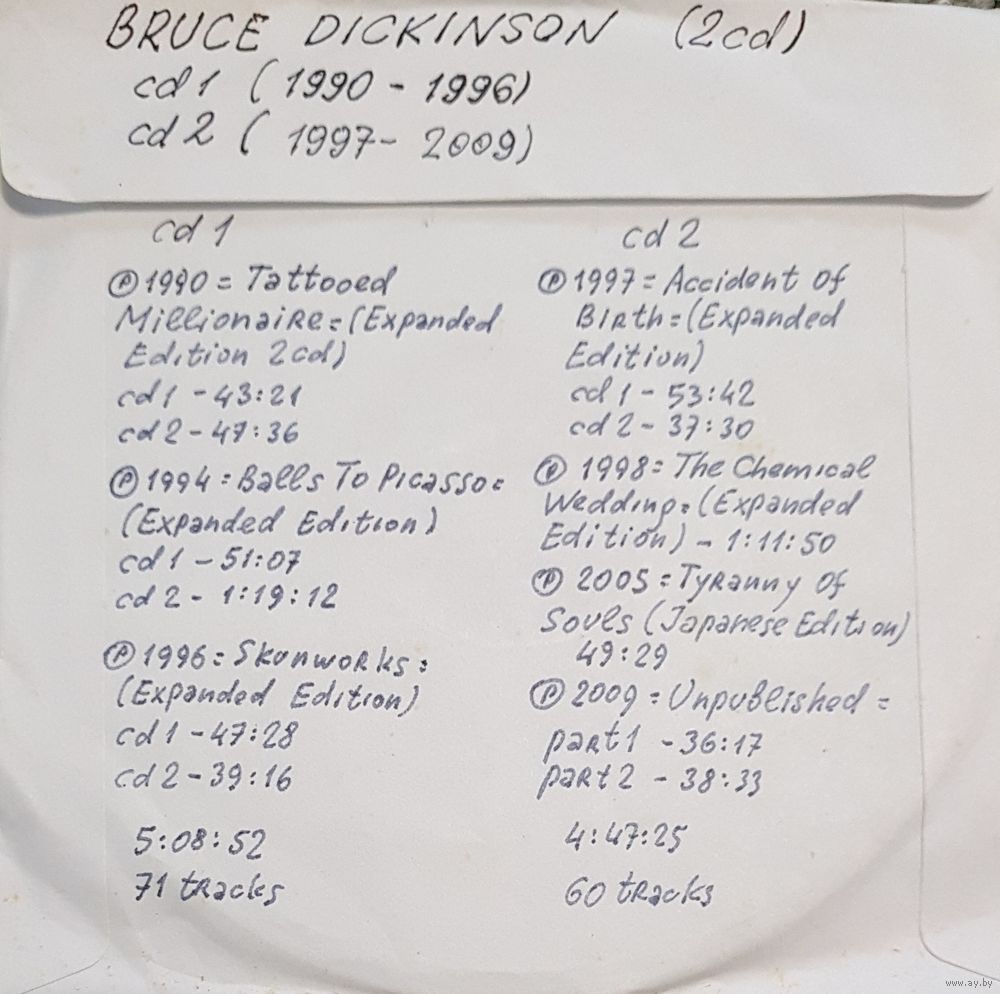 BRUCE DICKINSON (2cd)
cd 1 (1990 - 1996)
cd 2 (1997 - 2009)
cd 1
Ⓟ 1990 = Tattooed
Millionaire = (Expanded
Edition 2cd)
cd 1 - 43:21
cd 2 - 47:36
Ⓟ 1994 = Balls To Picasso =
(Expanded Edition)
cd 1 - 51:07
cd 2 - 1:19:12
Ⓟ 1996 = Skunworks =
(Expanded Edition)
cd 1 - 47:28
cd 2 - 39:16
5:08:52
71 tracks
cd 2
Ⓟ 1997 = Accident Of
Birth = (Expanded
Edition)
cd 1 - 53:42
cd 2 - 37:30
Ⓟ 1998 = The Chemical
Wedding = (Expanded
Edition) - 1:11:50
Ⓟ 2005 = Tyranny Of
Souls (Japanese Edition)
49:29
Ⓟ 2009 = Unpublished =
part 1 - 36:17
part 2 - 38:33
4:47:25
60 tracks
www.ay.by